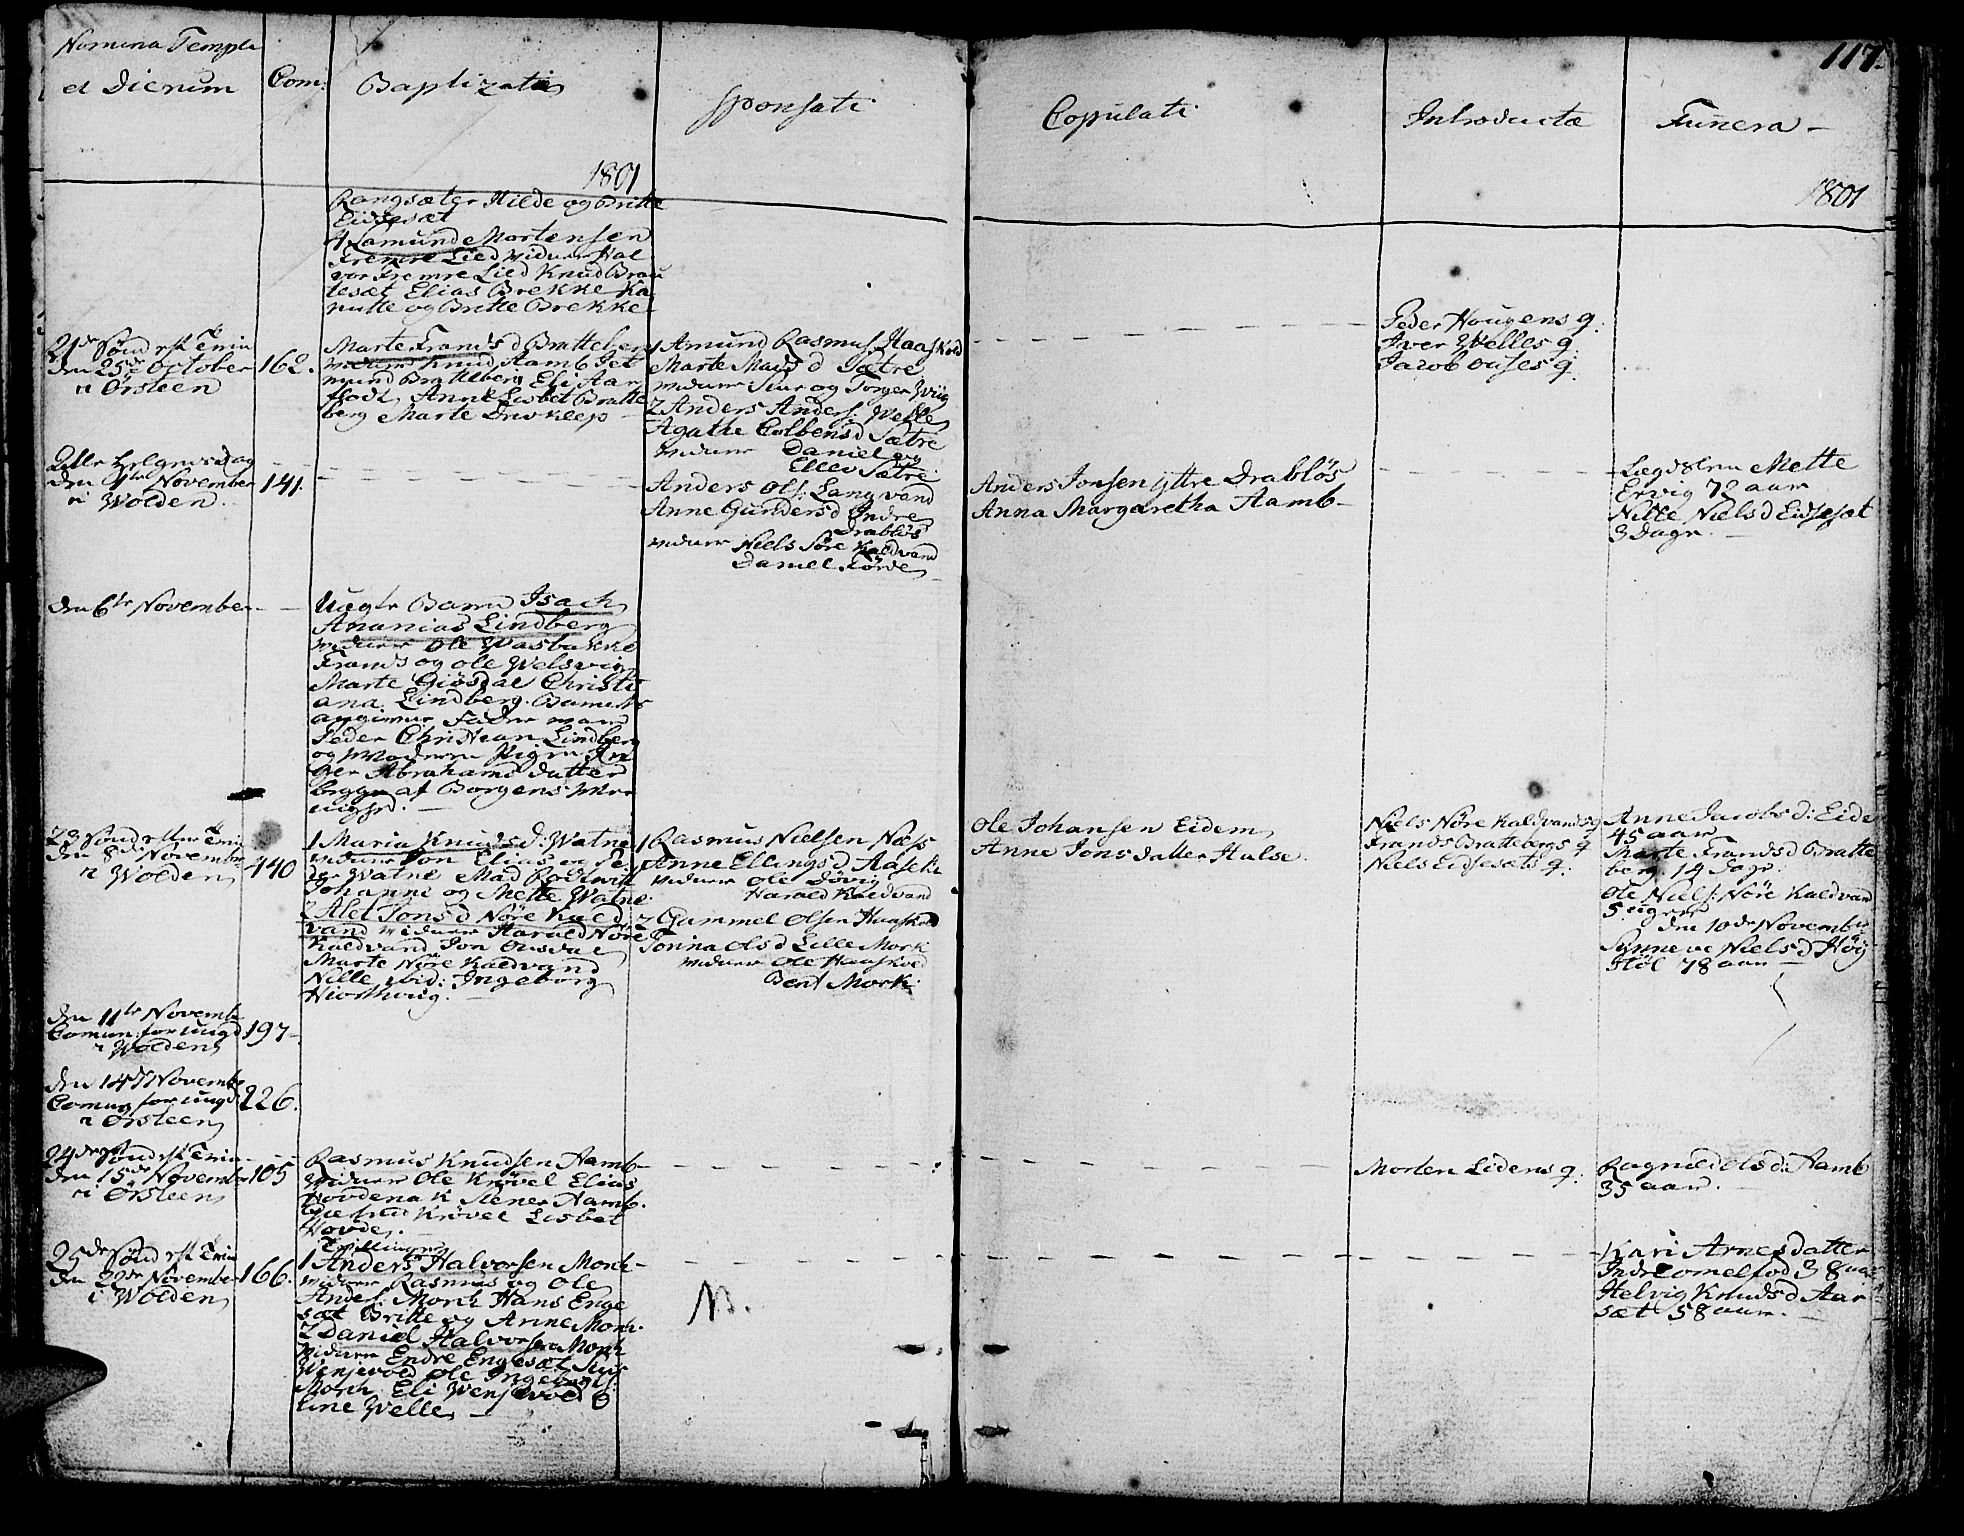 117.
Nomina Templi
et Dierum
Com:
Baptizati
Sponsati
Copulati
Introductæ
Funera
1801
1801
Rangsæter Hilde og Britte
Eidsesæt
4 Lamund Mortensen
Fremre Lied viduer Hal
vor Fremre Lied Knud Brau
tesæt Elias Brekke Ka
nutte og Britte Brekke
21de Sønd eft Trin
den 25de October
i Ørsteen
162.
Marte Frands d Bratteberg
viduer Knud Aamb Jet
mund Bratteberg Eli Aar
flodt Anne Lisbet Bratte
berg Marte Driveklep
1 Amund Rasmus. Haaskold
Marte Mads d Sætre
viduer Siur og Torger Wiig
2 Anders Anders: Welle
Agathe Colbens d Sætre
viduer Daniel og
Ellev Sætre
Peder Hougens q.
Iver Welles q.
Jacob Ouses q.
Alle Helgensdag
den 1ste November
i Wolden.
141.
Anders Ols: Langvand
Anne Gunders d Indre
Drabløs
viduer Niels Søre Kaldvand
Daniel Førde
Anders Jonsen Yttre Drabløs
Anna Margaretha Aamb
Lægdslem Mette
Ervig 72 aar
Nille Niels d Eidsesæt
3 Dage.
den 6te November
Uægte Barn Isach
Ananias Lindberg
viduer Ole Wasbakke
Frands og Ole Welsvig
Marte Giøsdal Christi
ana Lindberg. Barnets
angivne Fader mand
Peder Christian Lindberg
og Moderen Pigen In
ger Abrahams datter
begge af Borgens Me
nighed.
23 Sønd efter Trin
den 8de November
i Wolden
440
1 Maria Knuds d: Watne
viduer Jon Elias og Pe
der Watne Mad Rodtwitt
Johanne og Mette Watne
2 Alet Jons d Nøre Kald
vand viduer Harald Nøre
Kaldvand Jon Ousdal
Marte Nøre Kaldvand
Nille ibid: Ingeborg
Hiorthoug.
1 Rasmus Nielsen Næss
Anne Ellings d Aaseke
viduer Ole Døvig
Harald Kaldvand
2 Gammel Olsen Haaskold
Tonina Ols d Lille Mork
viduer Ole Haaskold
Bent Mork.
Ole Johansen Eidem
Anne Jonsdatter Hulse.
Niels Nøre Kaldvands q
Frands Brattebergs q
Niels Eidsesæts q.
Anne Jacobs d: Eide
45 aar
Marte Frands d Bratte
berg. 14 Dage.
Ole Niels: Nøre Kaldvand
5 uger
den 10de November
Synneve Niels d Høy
støl 78 aar
den 11te Novemb
Comun: for ungd
i Wolden
197
den 14de Novemb
Comun for ungd
i Ørsteen
226.
24de Sønd eft Trin
den 15de Novemb
i Ørsteen
105
Rasmus Knudsen Aamb
viduer Ole Krøvel Elias
Hovdenak Stener Aamb.
Giertrud Krøvel Lisbet
Hovde.
Morten Lidens q.
Ragnild Ols d: Aamb
35 aar.
25de Sønd eft Trin
den 22de November
i Wolden
166.
Tvillinger
1 Anders Halvorsen Mork
viduer Rasmus og Ole
Anders: Mork Hans Enge
sæt Britte og Anne Mork.
2 Daniel Halvorsen Mork
viduer Endre Engesæt Siur
Wenjevold Ole Ingebrigts:
Mork Eli Wenjevold O
line Welle
N.
Kari Arnesdatter
Indre Omelfod 38 aar
Helvig Knuds d Aar
sæt 58 aar.